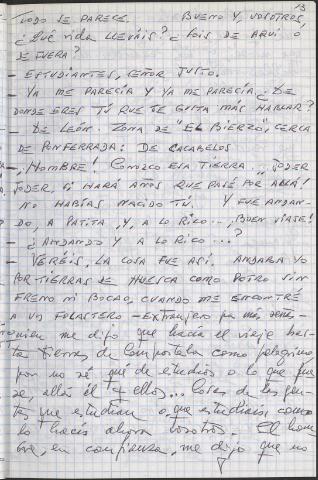 13
TODO SE PARECE. BUENO Y, VOSOTROS,
¿QUÉ VIDA LLEVÁIS? ¿SOIS DE AQUÍ O
DE FUERA?
- ESTUDIANTES, SEÑOR JUSTO.
- YA ME PARECÍA Y YA ME PARECÍA. ¿DE
DONDE ERES TÚ QUE TE GUSTA MÁS HABLAR?
- DE LEÓN. ZONA DE "EL BIERZO", CERCA
DE PONFERRADA: DE CACABELOS
- ¡HOMBRE! CONOZCO ESA TIERRA... JODER
JODER, SI HARÁ AÑOS QUE PASÉ POR ALLÁ!
NO HABÍAS NACIDO TÚ. Y FUE ANDAN-
DO, A PATITA, Y, A LO RICO... ¡BUEN VIAJE!
- ¿ANDANDO Y A LO RICO...?
- VERÉIS, LA COSA FUE ASÍ, ANDABA YO
POR TIERRAS DE HUESCA COMO POTRO SIN
FRENO NI BOCAO, CUANDO ME ENCONTRÉ
A UN FORASTERO - extranjero pa más señas -
quien me dijo que hacía el viaje has-
ta tierras de Compostela como peregrino,
por no sé qué de estudios o lo que fue-
se, allá él y ellos... Cosas de las gen-
tes que estudian o que estudiáis, como
lo hacéis ahora vosotros. El hom-
bre, en confianza, me dijo que no